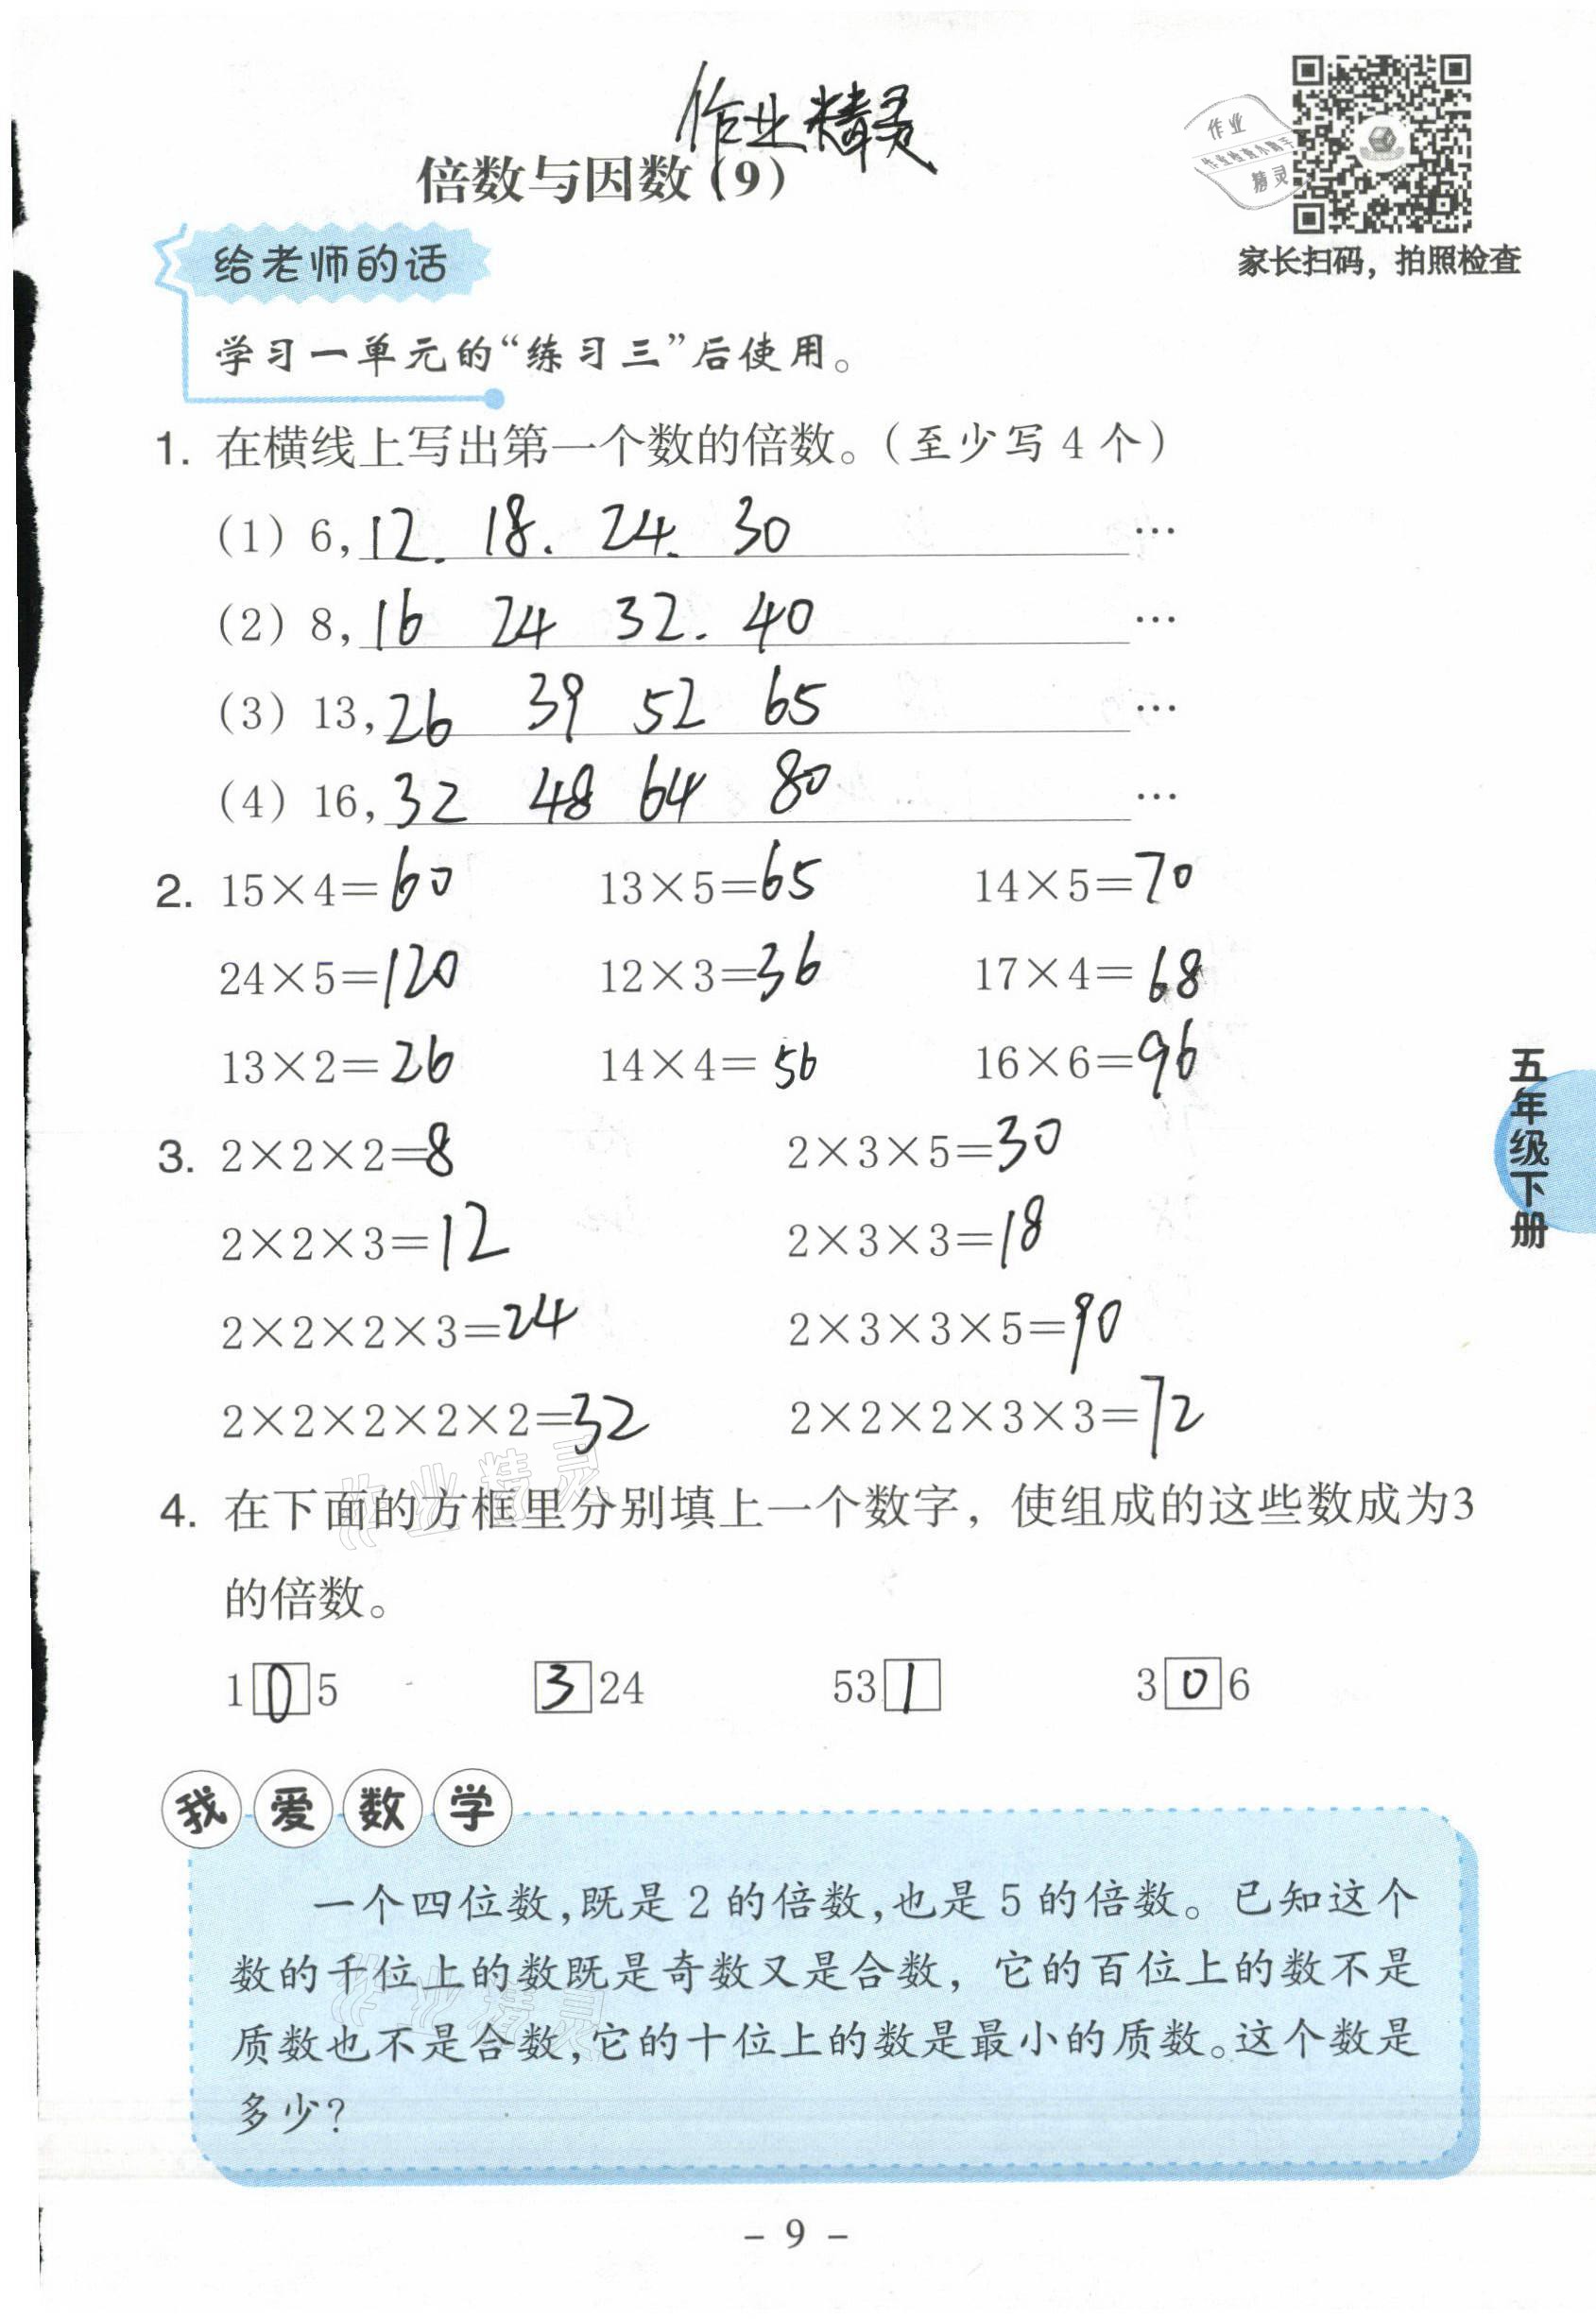 作业精灵
倍数与因数(9)
作业
作业检查小助手
精灵
家长扫码，拍照检查
给老师的话
学习一单元的“练习三”后使用。
1. 在横线上写出第一个数的倍数。(至少写4个)
(1) 6, 12. 18. 24. 30 …
(2) 8, 16 24 32. 40 …
(3) 13, 26 39 52 65 …
(4) 16, 32 48 64 80 …
2. 15×4=60 13×5=65 14×5=70
24×5=120 12×3=36 17×4=68
13×2=26 14×4=56 16×6=96
3. 2×2×2=8 2×3×5=30
2×2×3=12 2×3×3=18
2×2×2×3=24 2×3×3×5=90
2×2×2×2×2=32 2×2×2×3×3=72
作业精灵
4. 在下面的方框里分别填上一个数字，使组成的这些数成为3
的倍数。
1 0 5 3 24 53 1 3 0 6
五年级下册
我爱数学
一个四位数,既是2的倍数,也是5的倍数。已知这个
数的千位上的数既是奇数又是合数，它的百位上的数不是
作业精灵
质数也不是合数,它的十位上的数是最小的质数。这个数是
多少?
- 9 -